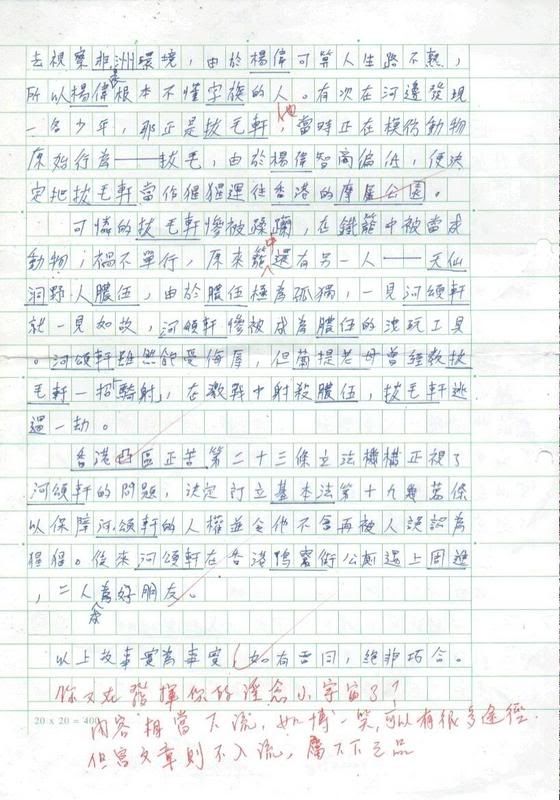 去視察非洲環境，由於楊偉可算人生路不熟，
所以楊偉根本不懂字族的人。有次在河邊發現
一名少年，那正是拔毛軒，他當時正在模仿動物
原始行為——拔毛，由於楊偉智商偏低，便決
定把拔毛軒當作猩猩運往香港的摩星公園。
可憐的拔毛軒慘被蹂躪，在鐵籠中被當成
動物；禍不單行，原來籠中還有另一人——天仙
洞野人膿伍，由於膿伍極為孤獨，一見河頌軒
就一見如故，河頌軒慘被成為膿伍的洩玩工具
。河頌軒雖然飽受侮辱，但菊提老母曾經教拔
毛軒一招「騎射」，在激戰中射殺膿伍，拔毛軒逃
過一劫。
香港特區正苦第二十三條立法機構正視了
河頌軒的問題，決定訂立基本法第十九條
以保障河頌軒的人權並令他不會再被人誤認為
猩猩。後來河頌軒在香港鴨寮街公廁遇上周進
，二人為好朋友。
以上故事實為事實，如有吾同，絕非巧合。
你又在發揮你的淫念小宇宙了？
20 x 20 = 400
內容相當下流，如博一笑，可以有很多途徑．
但寫文章則不入流，屬下下之品